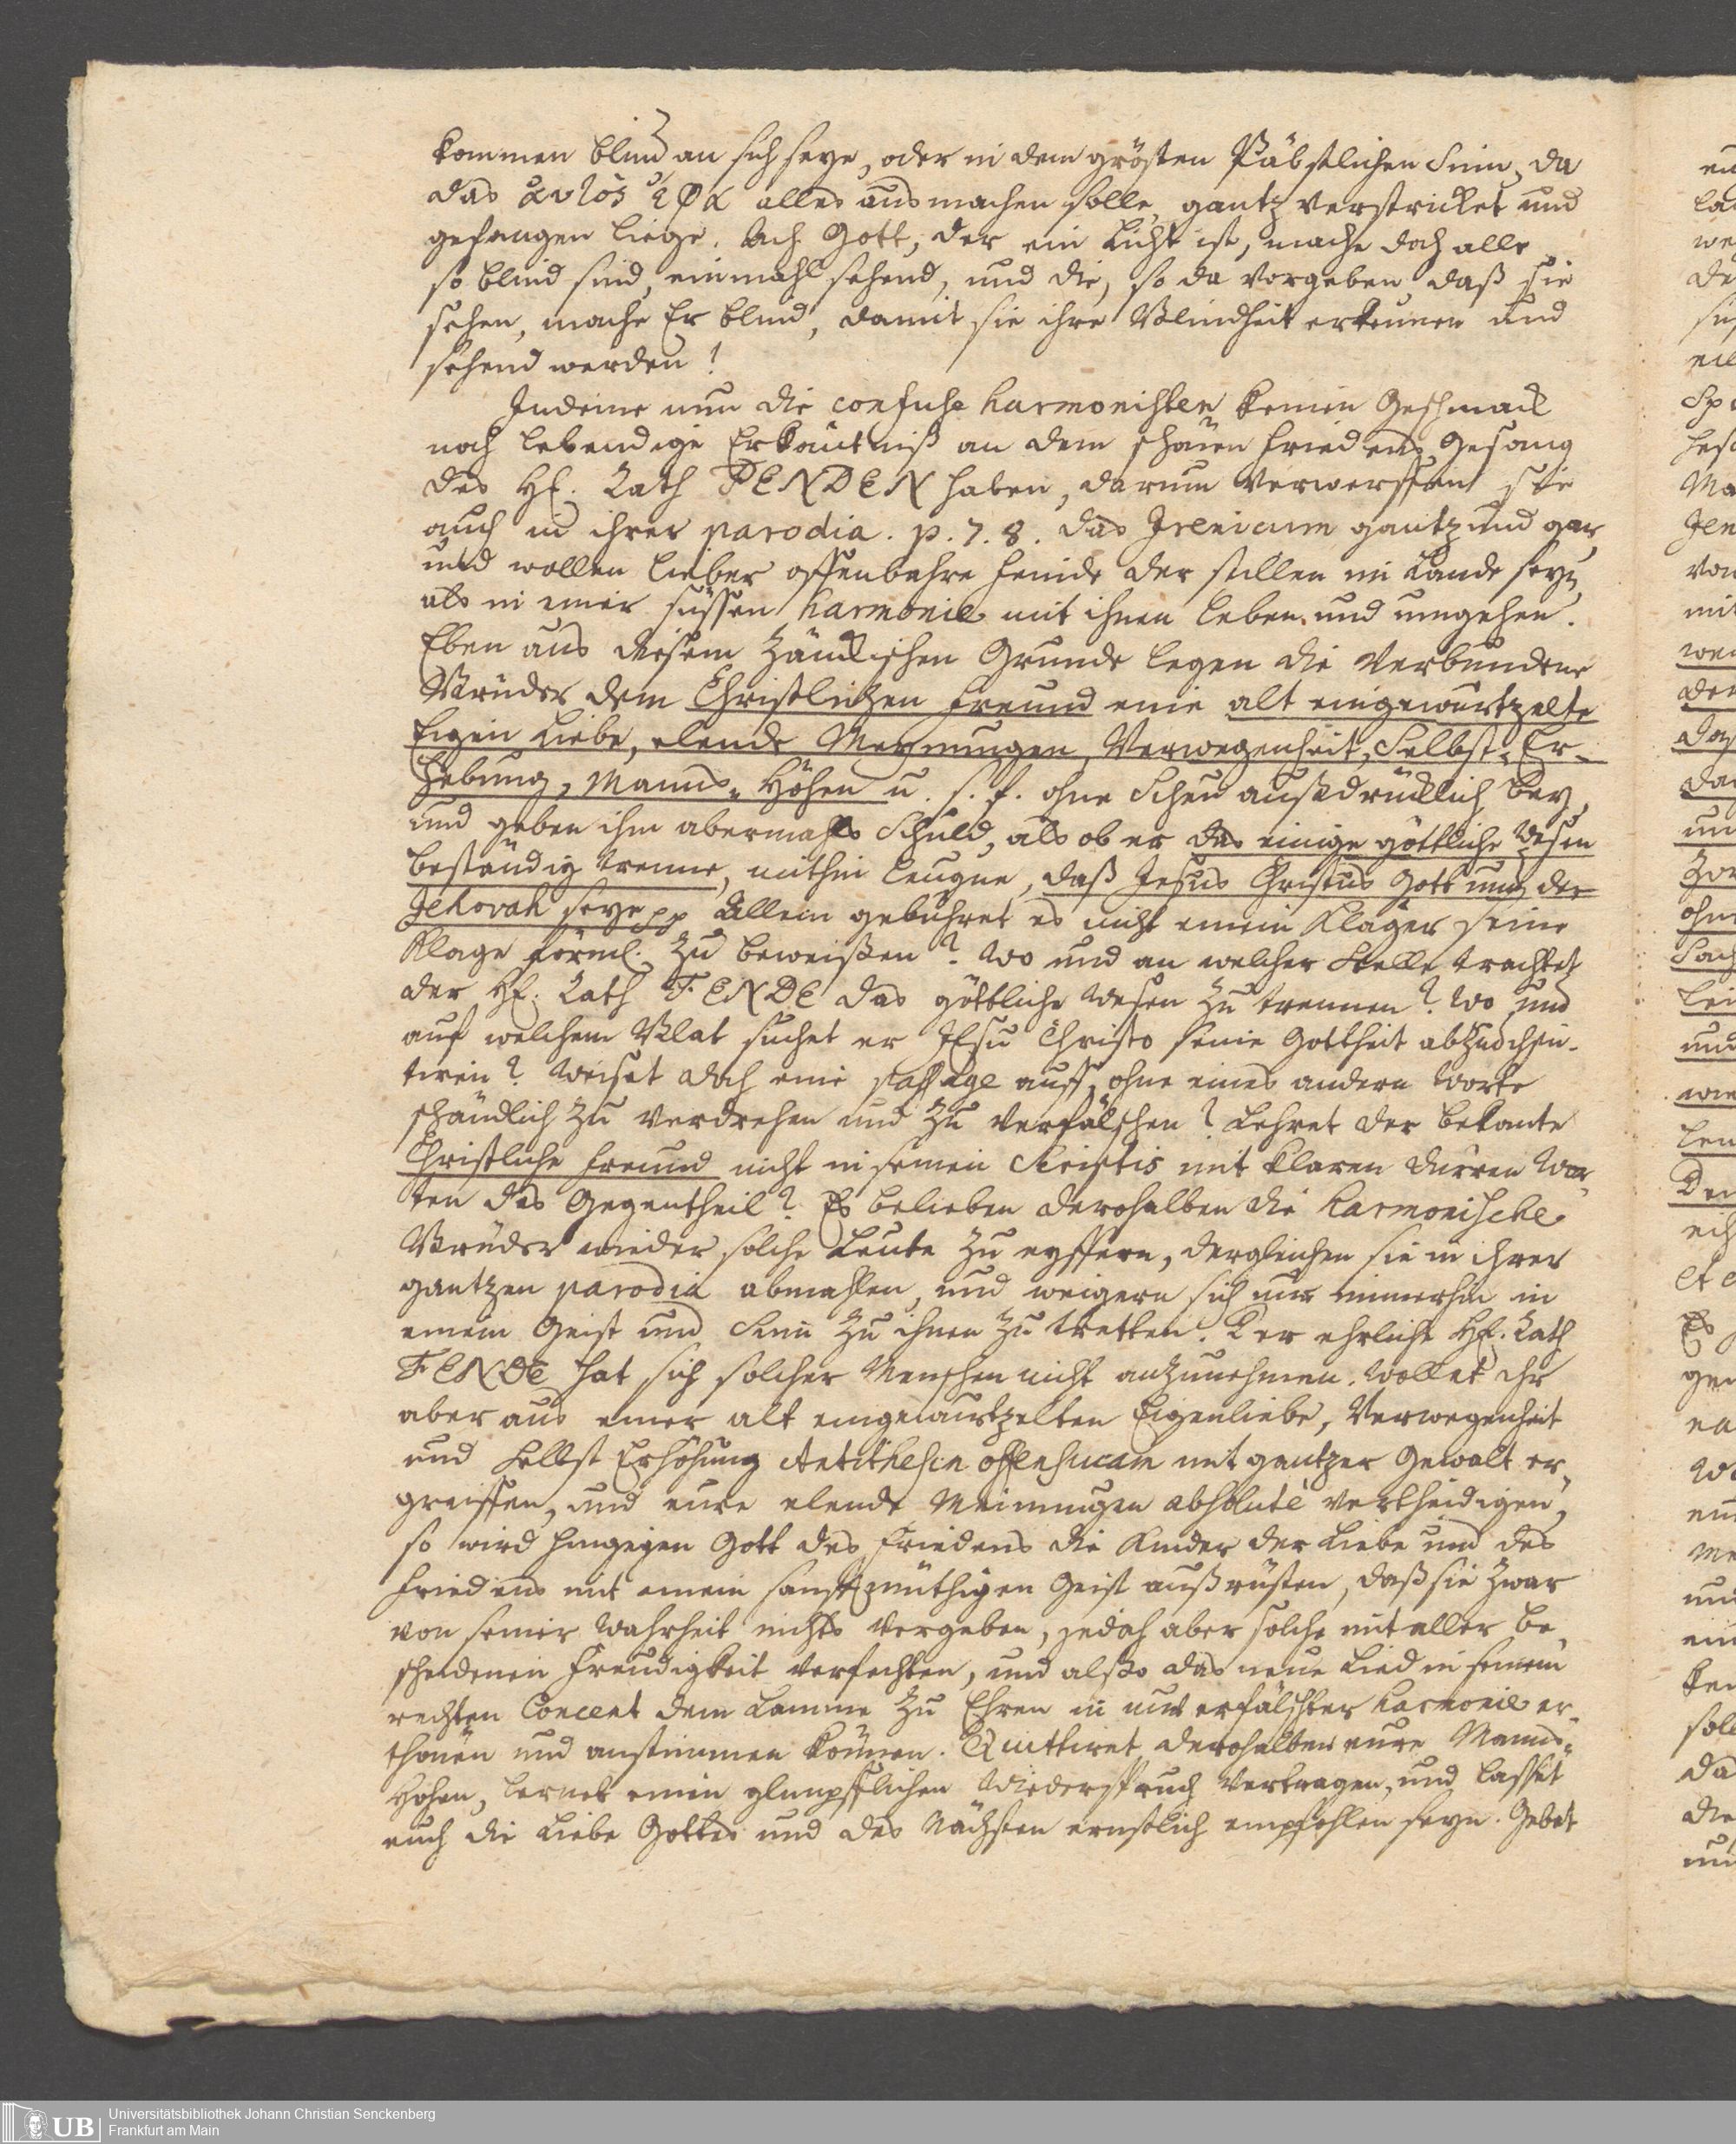 kommen blind an sich seye, oder in dem grösten Päbstlichen Sinn, da
das αὐτὸς ἔφα alles ausmachen solle, gantz verstricket und
gefangen liege. Ach Gott, der ein Licht ist, mache doch alle
so blind sind, einmahl sehend, und die, so da vorgeben daß sie
sehen, mache Er blind, damit sie ihre Blindheit erkennen und
sehend werden!
Indeme nun die confuse harmonisten keinen Geschmack
noch lebendige Erkäntniß an dem schönen Friedens Gesang
des H. Rath FENDEN haben, darum verwerffen sie
auch in ihrer parodia. p. 7. 8. das Irenicum gantz und gar
und wollen lieber offenbahre Feinde der stillen im Lande seyn,
als in einer süssen harmonie mit ihnen leben und umgehen.
Eben aus diesem zänckischen Grunde legen die verbundene
Brüder dem Christlichen Freund eine alt eingewurtzelte
Eigen Liebe, elende Meynungen, Verwegenheit, Selbst-Er-
hebung, Manns-Höhen u. s. f. ohne Scheu außdrücklich bey,
und geben ihm abermahls Schuld, als ob er das einige göttliche Wesen
beständig trenne, mithin leugne, daß Jesus Christus Gott und der
Jehovah seye pp Allein gebühret es nicht einem Kläger seine
Klage förml. zu beweißen? Wo und an welcher Stelle trachtet
der H. Rath FENDE das göttliche Wesen zu trennen? Wo und
auf welchem Blat suchet er JEsu Christo seine Gottheit
Weiset doch eine passage auff, ohne eines andern Worte
schändlich zu verdrehen und zu verfälschen? Lehret der bekante
Christliche Freund nicht in seinen Scriptis mit klaren dürren Wor-
ten das Gegentheil? Es belieben derohalben die harmonische
Brüder wieder solche Leute zu eyffern, dergleichen sie in ihrer
gantzen parodia abmahlen, und weigern sich nur immerhin in
einem Geist und Sinn zu ihnen zu tretten. Der ehrliche H. Rath
FENDE hat sich solcher Menschen nicht anzunehmen. Wollet ihr
aber aus einer alt eingewurtzelten Eigenliebe, Verwegenheit
und Selbst Erhöhung Antithesin offensivam mit gantzer Gewalt er-
greiffen, und eure elende Meinungen absolute vertheidigen,
so wird hingegen Gott des Friedens die Kinder der Liebe und des
Friedens mit einem sanfftmüthigen Geist außrüsten, daß sie zwar
von seiner Wahrheit nichts vergeben, jedoch aber solche mit aller be-
scheidenen Freudigkeit verfechten, und also das neue Lied in seinem
rechten Concent dem Lamme zu Ehren in unverfälschter harmonie er-
thönen und anstimmen können. Quittiret derohalben eure Manns-
Höhen, lernet einen glimpfflichen Wiederspruch vertragen, und lasset
euch die Liebe Gottes und des Nächsten ernstlich empfohlen seyn. Gebet
Universitätsbibliothek Johann Christian Senckenberg
Frankfurt am Main
UB